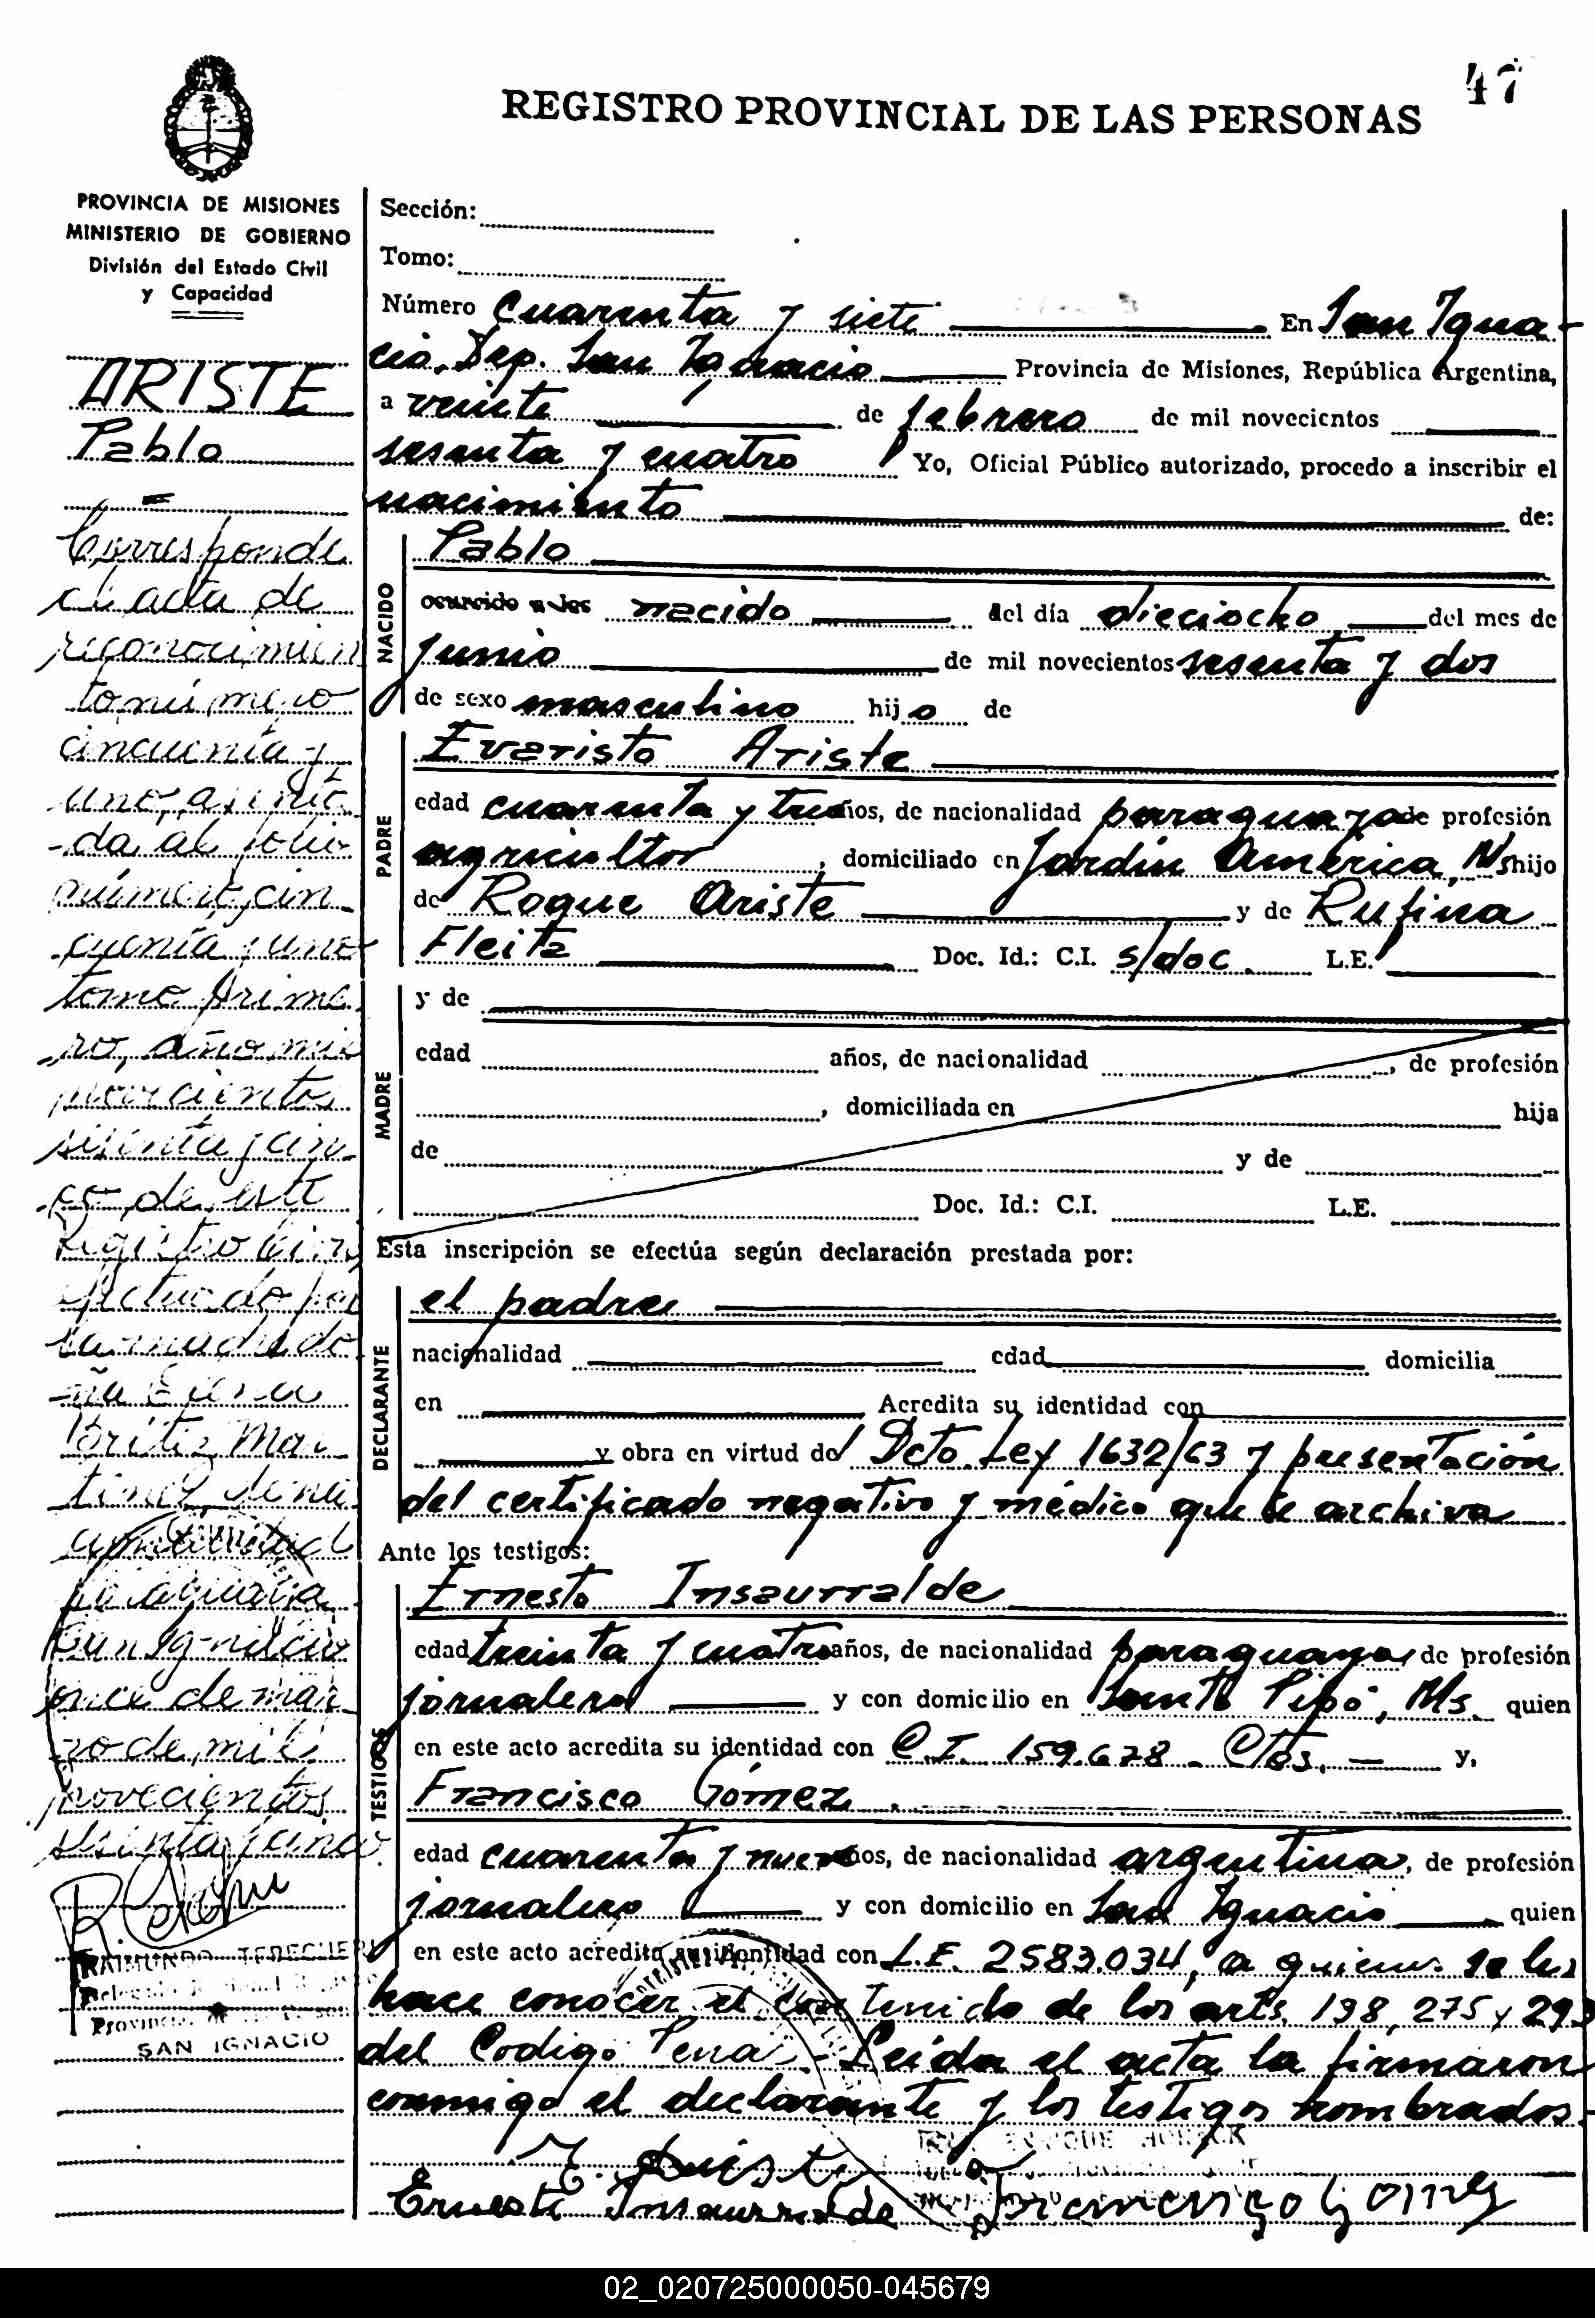 47
REGISTRO PROVINCIAL DE LAS PERSONAS
PROVINCIA DE MISIONES
MINISTERIO DE GOBIERNO
División del Estado Civil
y Capacidad
ARISTE
Pablo
Corresponde
el acta de
reconocimien
to número
cincuenta y
uno, asenta
da al folio
número cin
cuenta y uno
tomo prime
ro, año mil
novecientos
sesenta y cin
co de este
Registro Civil,
efectuado por
la madre do
ña Elena
Brítez Mar
tínez, de na
cionalidad
paraguaya
San Ignacio
once de mar
zo de mil
novecientos
sesenta y cinco
RAIMUNDO
SAN IGNACIO
Sección:
Tomo:
Número cuarenta y siete En San Igna-
cio, Dep. San Ignacio Provincia de Misiones, República Argentina,
a veinte de febrero de mil novecientos
sesenta y cuatro Yo, Oficial Público autorizado, procedo a inscribir el
nacimiento de:
NACIDO
Pablo
ocurrido a las nacido del día dieciocho del mes de
junio de mil novecientos sesenta y dos
de sexo masculino hijo de
PADRE
Evaristo Ariste
edad cuarenta y tres años, de nacionalidad paraguaya de profesión
agricultor, domiciliado en Jardín América, Ms hijo
de Roque Ariste y de Rufina
Fleita Doc. Id.: C.I. s/doc. L.E.
MADRE
y de
edad años, de nacionalidad , de profesión
, domiciliada en hija
de y de
Doc. Id.: C.I. L.E.
Esta inscripción se efectúa según declaración prestada por:
DECLARANTE
el padre
nacionalidad edad domicilia
en Acredita su identidad con
y obra en virtud de Dcto. Ley 1632/63 y presentación
del certificado negativo y médico que se archiva
Ante los testigos:
TESTIGOS
Ernesto Insaurralde
edad treinta y cuatro años, de nacionalidad paraguaya, de profesión
jornalero y con domicilio en Santo Pipó, Ms. quien
en este acto acredita su identidad con C.I. 159.678 - Ctes. y,
Francisco Gómez
edad cuarenta y nueve años, de nacionalidad argentina, de profesión
jornalero y con domicilio en San Ignacio quien
en este acto acredita su identidad con L.E. 2583.034, a quienes se les
hace conocer el contenido de los arts. 198, 275 y 293
del Codigo Penal - Leída el acta la firmaron
conmigo el declarante y los testigos nombrados.-
E. Ariste
Ernesto Insaurralde Francisco Gomez
02_020725000050-045679